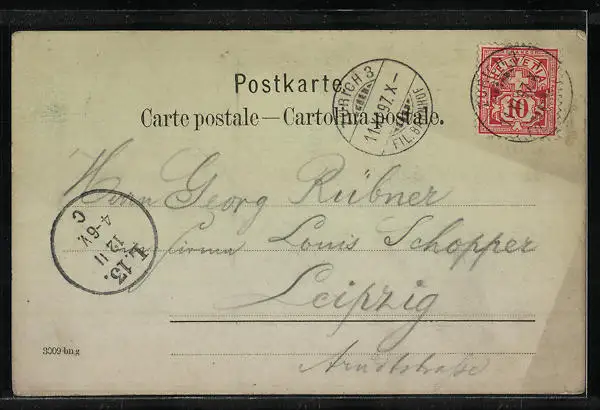 Postkarte.
Carte postale — Cartolina postale.
ZÜRICH 3
11.XI.97.X–
FIL. BAHNHOF
HELVETIA
10
Herrn Georg Rübner
Firma Louis Schopper
Leipzig
Arndtstraße
L. 13.
12 11
4-6 V.
C
3009 bn g